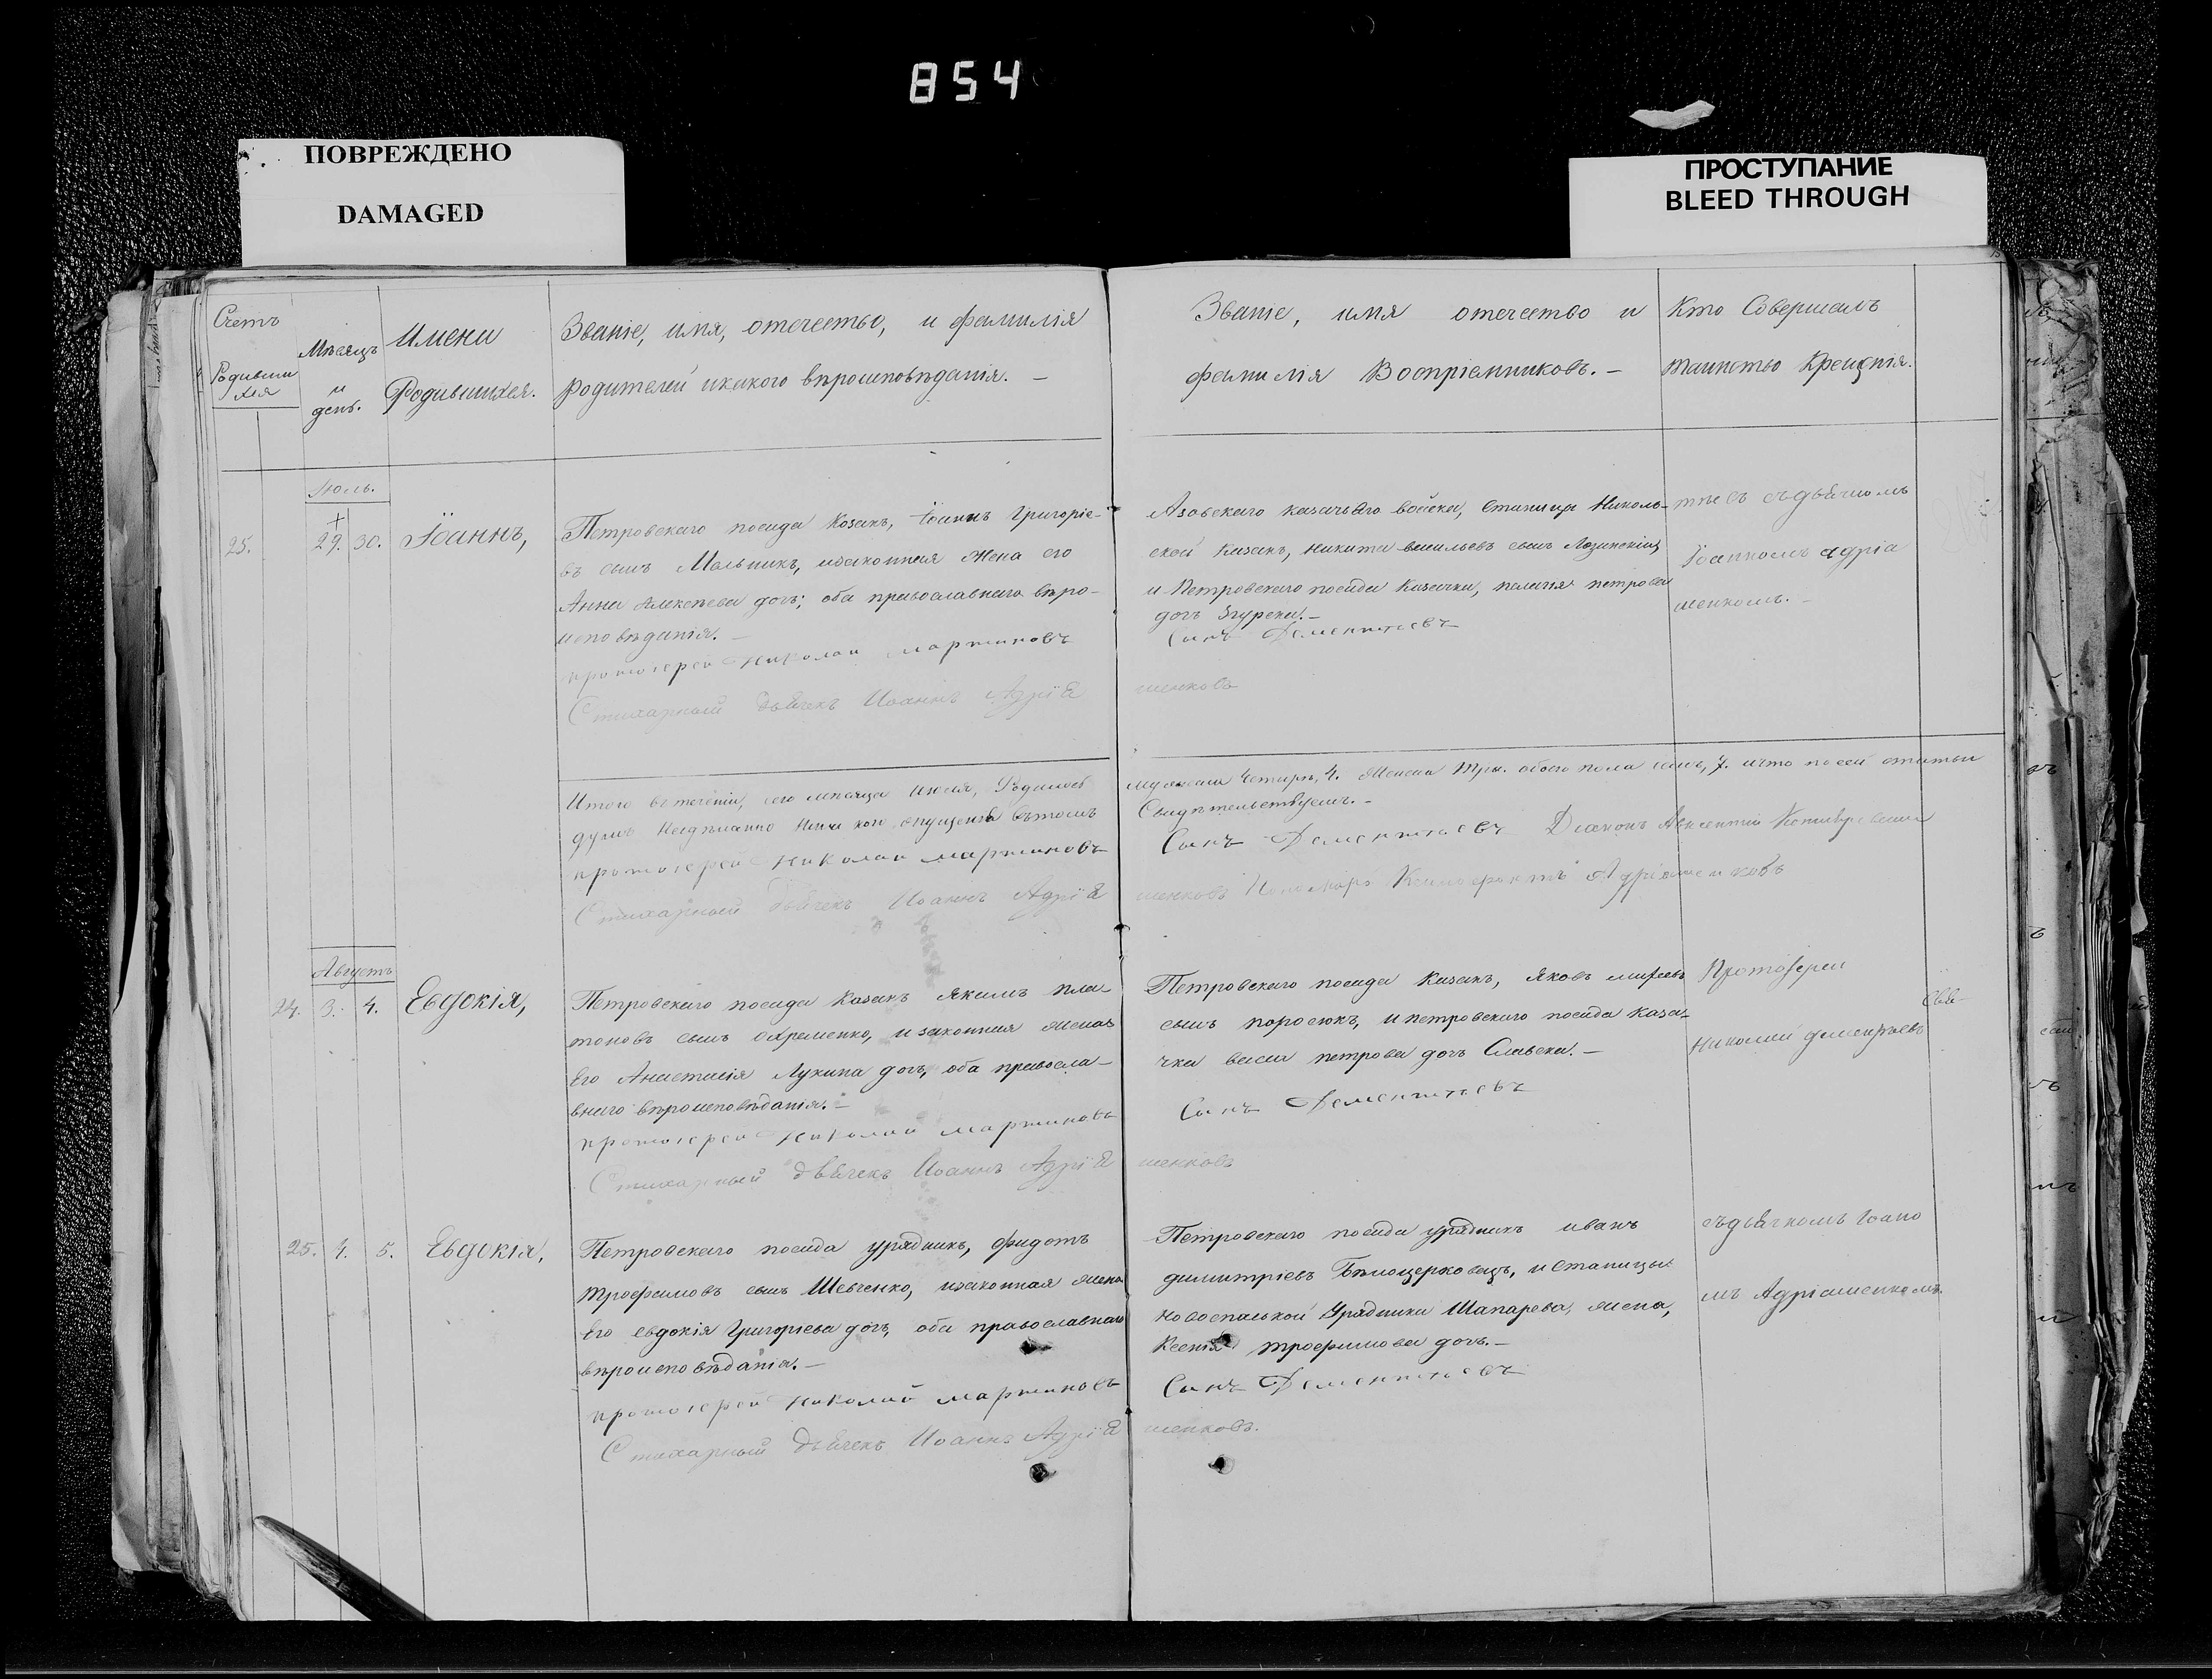 854
ПОВРЕЖДЕНО
DAMAGED
ПРОСТУПАНИЕ
BLEED THROUGH
Счетъ
Родивши
хся
Мѣсяцъ
и
день.
Имена
Родившихся.
Званіе, имя, отечество, и фамилія
родителей икакого вѣроисповѣданія. —
Званіе, имя отечество и
фамилія Воспріемниковъ. —
Кто Совершалъ
таинство Крещенія.
Іюль.
25. 29. 30. Іоаннъ,
Петровскаго посада Козакъ, Іоаннъ Григоріе-
въ сынъ Мельникъ, изаконная жена его
Анна Алексѣева дочь; оба православнаго вѣро-
исповѣданія. —
протоіерей Николай Мартиновъ
Стихарный дьячекъ Иоаннъ Адріа
Азовскаго казачьяго войска, Станицы Николь-
ской Казакъ, Никита васильевъ сынъ Лозинскій,
и Петровскаго посада Казачка, пелагія петрова
дочь Згурска. —
Сынъ Дементіевъ
шенковъ
тиевъ съдьячкомъ
Іоанномъ адріа
шенкомъ. —
Итого въ теченіи, сего мѣсяца Июля, Родилось
мужеска Четыри, 4. Женска три. обоего пола семь, 7. ичто по сей статьи
Свидѣтельствуемъ. —
протоіерей Николай Мартиновъ
Сынъ Дементіевъ Діаконъ
Стихарный дьячекъ Иоаннъ Адріа
шенковъ Пономарь Ксенофонтъ Адріашенковъ
Августъ
24. 3. 4. Евдокія,
Петровскаго посада Казакъ Якимъ пла-
тоновъ сынъ Охременко, и законная жена
Его Анастасія Лукина дочь, оба правосла-
внаго вѣроисповѣданія. —
протоіерей Николай Мартиновъ
Стихарный дьячекъ Иоаннъ Адріа
Петровскаго посада Казакъ, Яковъ
сынъ поросюкъ, и петровскаго посада Каза-
чка васса петрова дочь Славска. —
Сынъ Дементіевъ
шенковъ
Протоіерей
Николай
25. 4. 5. Евдокія,
Петровскаго посада урядникъ, Фидотъ
Трофимовъ сынъ Шевченко, изаконная жена
Его евдокія Григоріева дочь, оба православнаго
вѣроисповѣданія. —
протоіерей Николай Мартиновъ
Стихарный дьячекъ Иоаннъ Адріа
Петровскаго посада урядникъ иванъ
димитріевъ Бѣлоцерковецъ, и Станицы
новоспаской Урядника Шапарева, жена,
Ксенія трофимова дочь. —
Сынъ Дементіевъ
шенковъ.
съдьячкомъ Іоано
мъ Адріашенкомъ.